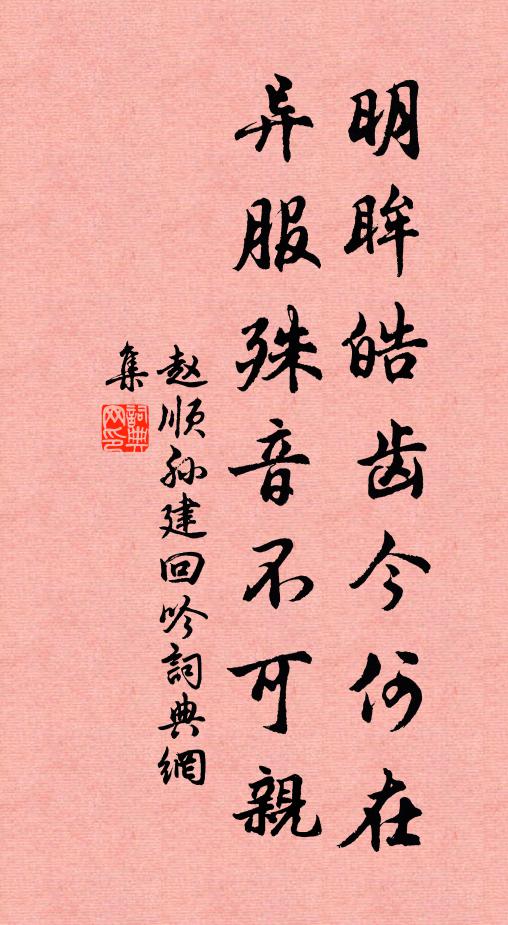 明眸皓齿今何在
异服殊音不可親
赵顺孙建回吟詞典網
集
詞典网印